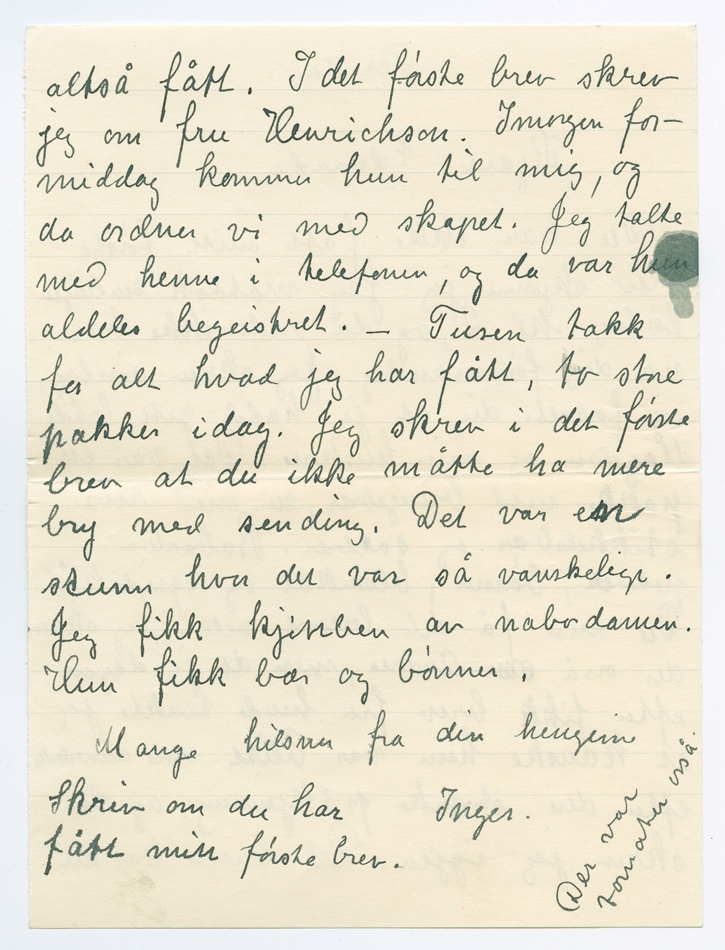 altså fått. I det første brev skrev
jeg om fru Henrichson. Imorgen for-
middag kommer hun til mig, og
da ordner vi med skapet. Jeg talte
med henne i telefonen, og da var hun
aldeles begeistret. — Tusen takk
for alt hvad jeg har fått, to store
pakker idag. Jeg skrev i det første
brev at du ikke måtte ha mere
bry med sending. Det var en
stunn hvor det var så vanskelige.
Jeg fikk kjittben av nabodamen.
Hun fikk bær og bønner.
Mange hilsner fra din hengivne
Inger.
Skriv om du har
fått mitt første brev.
Der var
tomater også.